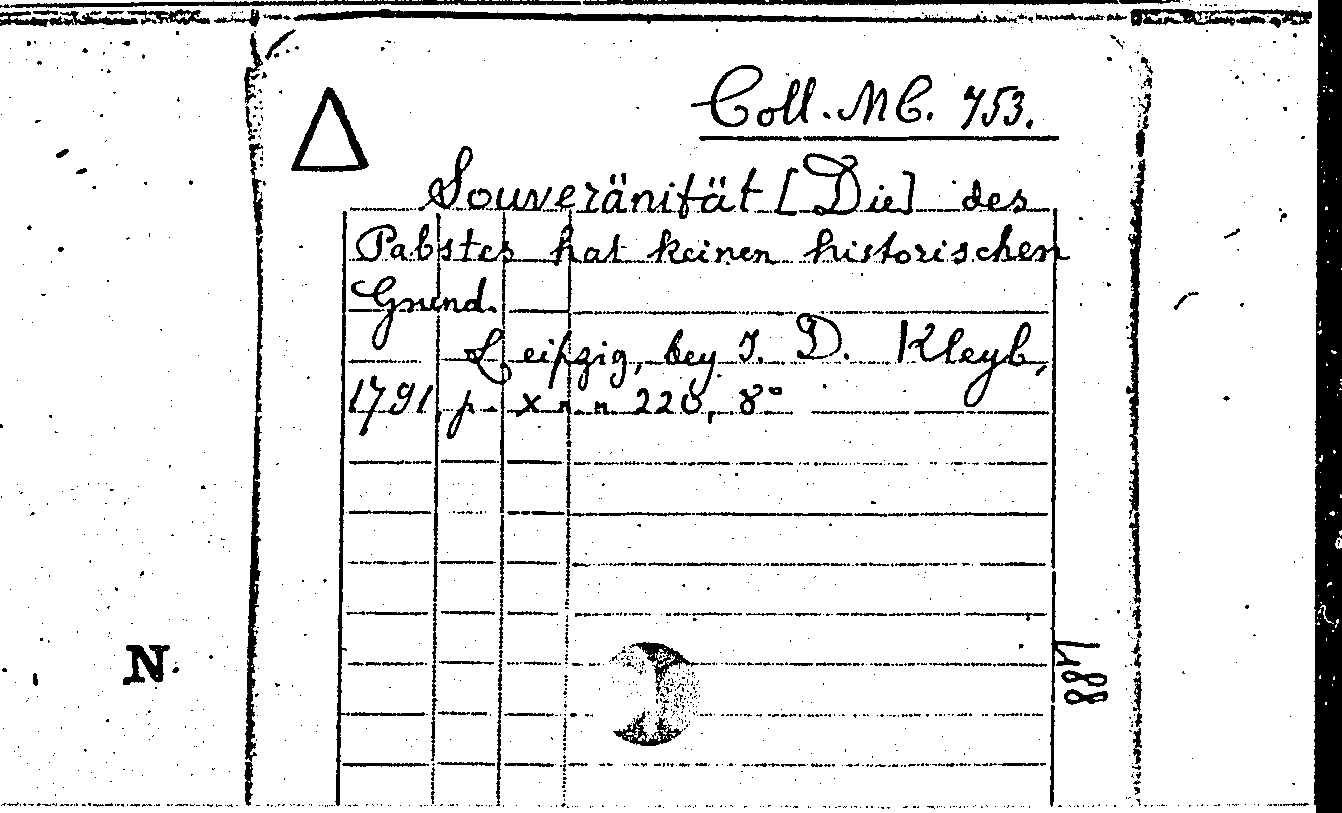 Coll. MC. 753.
Souveränität [Die] des
Pabstes hat keinen historischen
Grund.
Leipzig, bey I. D. Kleyb,
1791, p. X n. n. 220, 8°
N
887